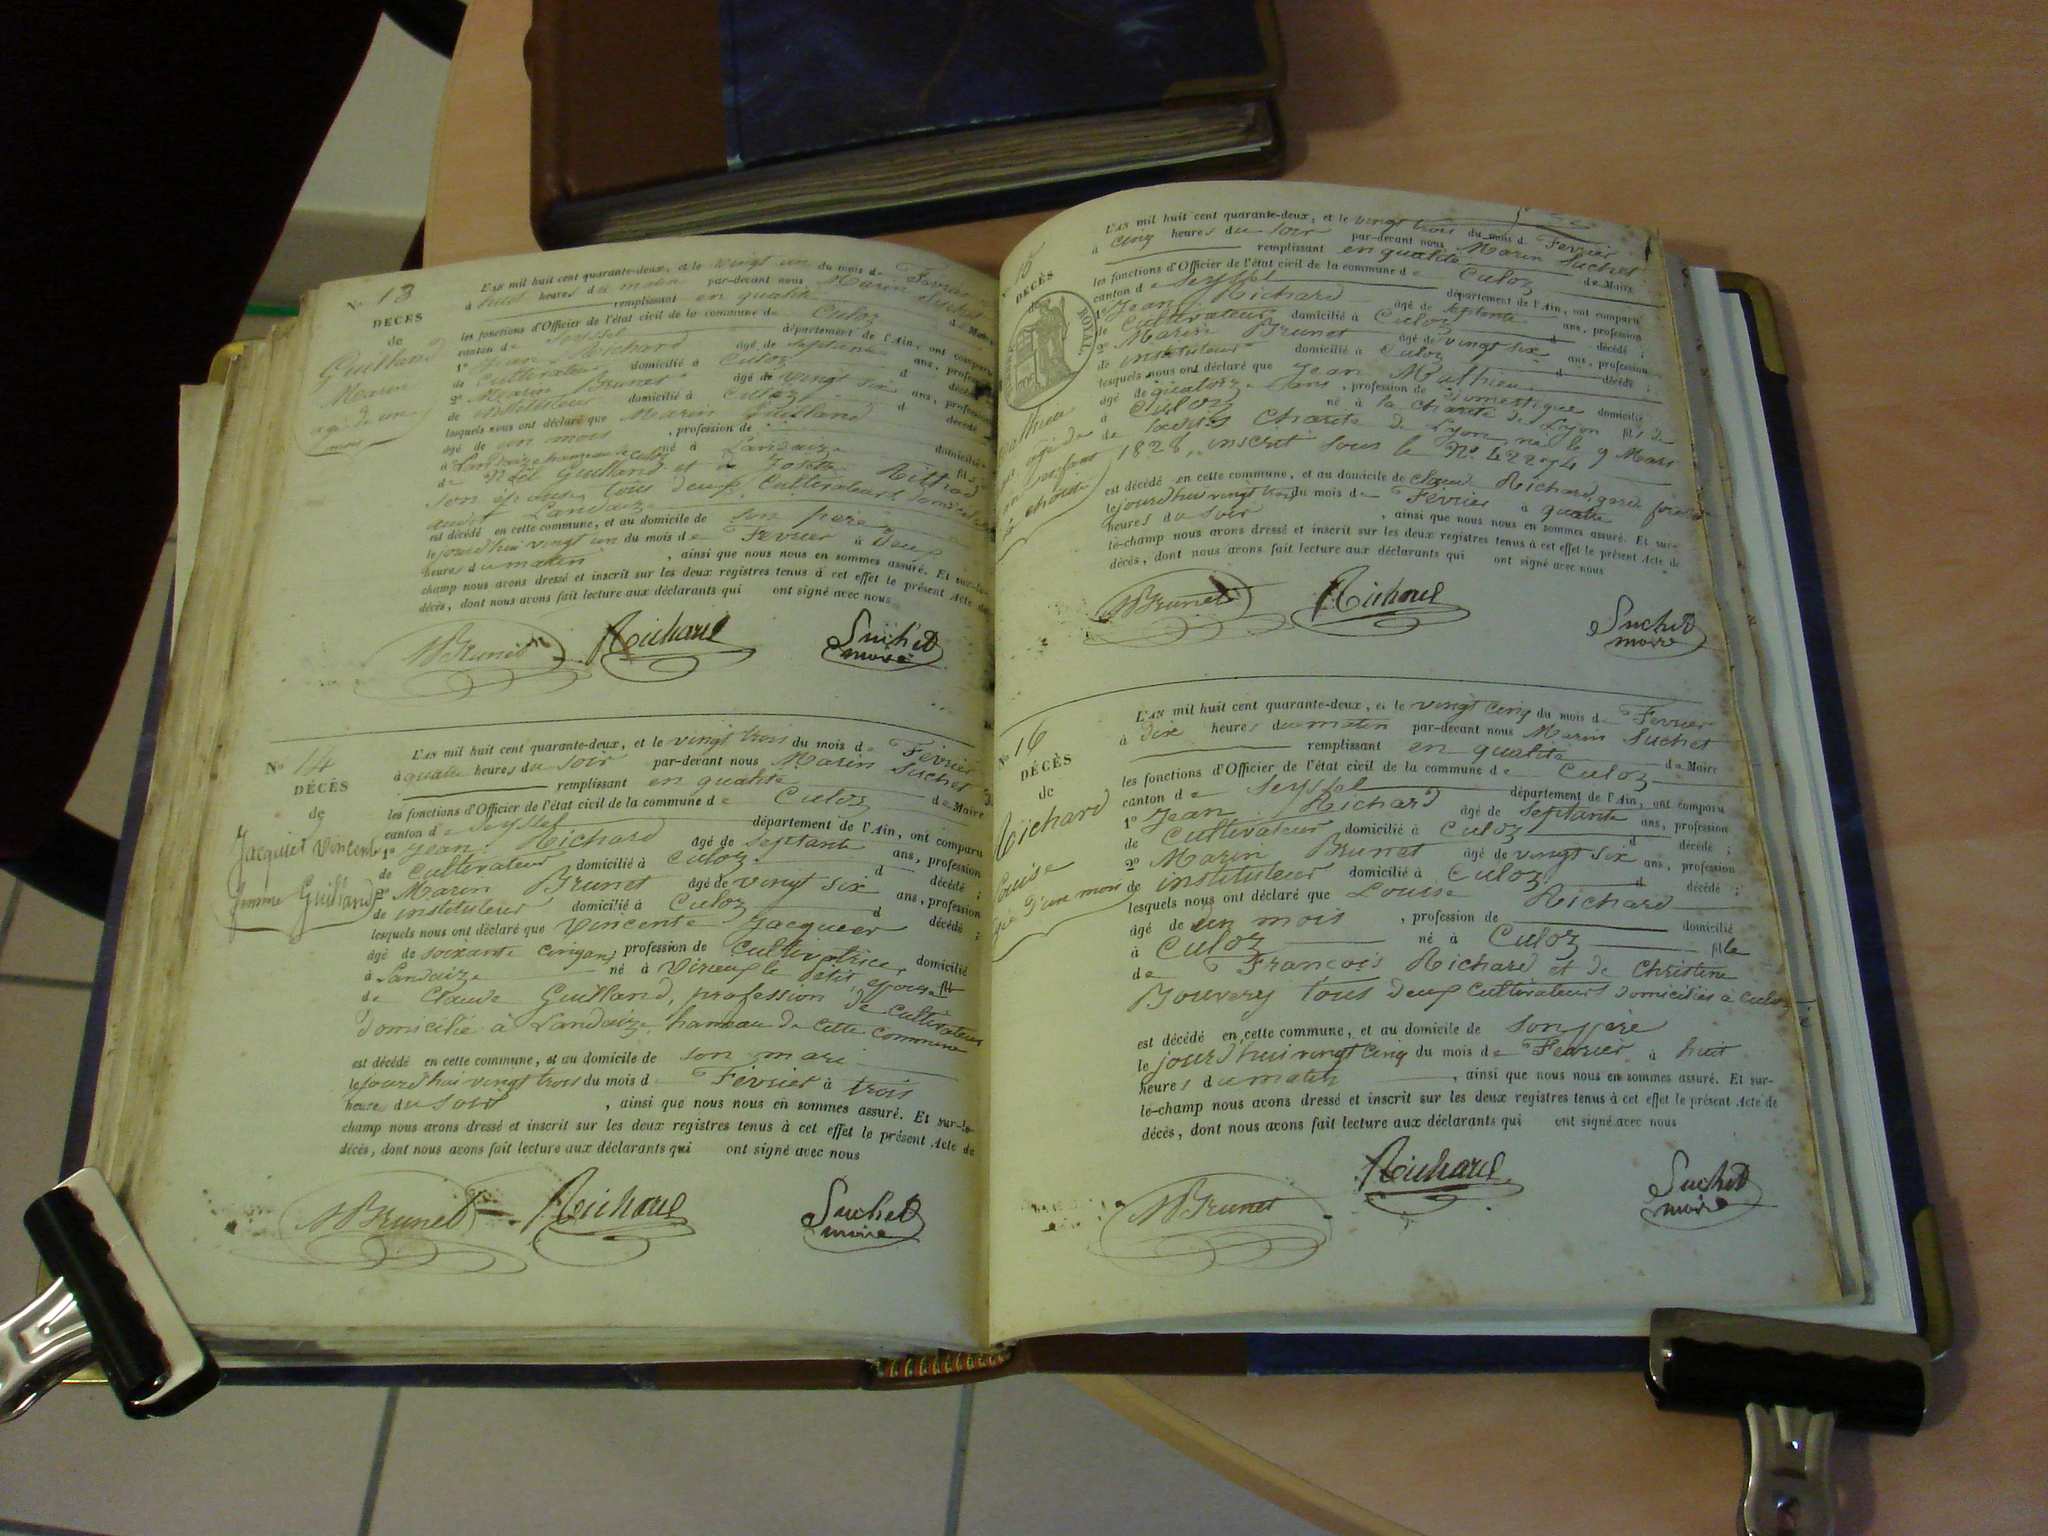 N° 13
DÉCÈS
de
Guilland
Marin
agé de un
mois
L'AN mil huit cent quarante-deux, et le vingt un du mois de Février
à huit heures du matin par-devant nous Marin Suchet
remplissant en qualité de Maire
les fonctions d'Officier de l'état civil de la commune de Culoz
canton de Seyssel département de l'Ain, ont comparu
1° Jean Richard âgé de septante ans, profession
de Cultivateur domicilié à Culoz d décédé
2° Marin Brunet âgé de vingt six ans, profession
de instituteur domicilié à Culoz d décédé
lesquels nous ont déclaré que Marin Guilland
âgé de un mois, profession de domicilié
à Landaize hameau de Culoz né à Landaize fils
de Noël Guilland et de Josette
son épouse tous deux Cultivateurs domiciliés
audit Landaize
est décédé en cette commune, et au domicile de son père
le jourd'hui vingt un du mois de Février à deux
heures du matin, ainsi que nous nous en sommes assuré. Et sur-le-
champ nous avons dressé et inscrit sur les deux registres tenus à cet effet le présent Acte de
décès, dont nous avons fait lecture aux déclarants qui ont signé avec nous
MBrunet Richard Suchet
maire
N° 14
DÉCÈS
de
Jacquier Vincente
femme Guilland
L'AN mil huit cent quarante-deux, et le vingt trois du mois de Février
à quatre heures du soir par-devant nous Marin Suchet
remplissant en qualité de Maire
les fonctions d'Officier de l'état civil de la commune de Culoz
canton de Seyssel département de l'Ain, ont comparu
1° Jean Richard âgé de septante ans, profession
de Cultivateur domicilié à Culoz d décédé ;
2° Marin Brunet âgé de vingt six ans, profession
de instituteur domicilié à Culoz d décédé ;
lesquels nous ont déclaré que Vincente Jacquier
âgé de soixante cinq ans, profession de Cultivatrice, domicilié
à Landaize né à Virieux le petit, épouse fil
de Claude Guilland, profession de Cultivateur
domicilié à Landaize, hameau de cette commune
est décédé en cette commune, et au domicile de son mari
le jourd'hui vingt trois du mois de Février à trois
heures du soir, ainsi que nous nous en sommes assuré. Et sur-le-
champ nous avons dressé et inscrit sur les deux registres tenus à cet effet le présent Acte de
décès, dont nous avons fait lecture aux déclarants qui ont signé avec nous
MBrunet Richard Suchet
maire
15
DÉCÈS
de
ROYAL
Mathieu
enfant
L'AN mil huit cent quarante-deux, et le vingt trois du mois d Février
à cinq heures du soir par-devant nous Marin Suchet
remplissant en qualité de Maire
les fonctions d'Officier de l'état civil de la commune de Culoz
canton de Seyssel département de l'Ain, ont comparu
1° Jean Richard âgé de septante ans, profession
de Cultivateur domicilié à Culoz d décédé ;
2° Marin Brunet âgé de vingt six ans, profession
de instituteur domicilié à Culoz d décédé ;
lesquels nous ont déclaré que Jean Mathieu
âgé de quatorze ans, profession de domestique domicilié
à Culoz né à la charité de Lyon fils de
de Charité de Lyon né le 9 Mars
1828, inscrit sous le N° 42274
est décédé en cette commune, et au domicile de Claude Richard, garde forestier
le jourd'hui vingt trois du mois de Février à quatre
heures du soir, ainsi que nous nous en sommes assuré. Et sur-
le-champ nous avons dressé et inscrit sur les deux registres tenus à cet effet le présent Acte de
décès, dont nous avons fait lecture aux déclarants qui ont signé avec nous
MBrunet Richard Suchet
maire
N° 16
DÉCÈS
de
Richard
Louise
agée d'un mois
L'AN mil huit cent quarante-deux, et le vingt cinq du mois de Février
à dix heures du matin par-devant nous Marin Suchet
remplissant en qualité de Maire
les fonctions d'Officier de l'état civil de la commune de Culoz
canton de Seyssel département de l'Ain, ont comparu
1° Jean Richard âgé de septante ans, profession
de Cultivateur domicilié à Culoz d décédé ;
2° Marin Brunet âgé de vingt six ans, profession
de instituteur domicilié à Culoz d décédé ;
lesquels nous ont déclaré que Louise Richard
âgé de un mois, profession de domicilié
à Culoz né à Culoz fille
de François Richard et de Christine
Bouvery tous deux cultivateurs domiciliés à Culoz
est décédé en cette commune, et au domicile de son père
le jourd'hui vingt cinq du mois de Février à huit
heures du matin, ainsi que nous nous en sommes assuré. Et sur-
le-champ nous avons dressé et inscrit sur les deux registres tenus à cet effet le présent Acte de
décès, dont nous avons fait lecture aux déclarants qui ont signé avec nous
MBrunet Richard Suchet
maire